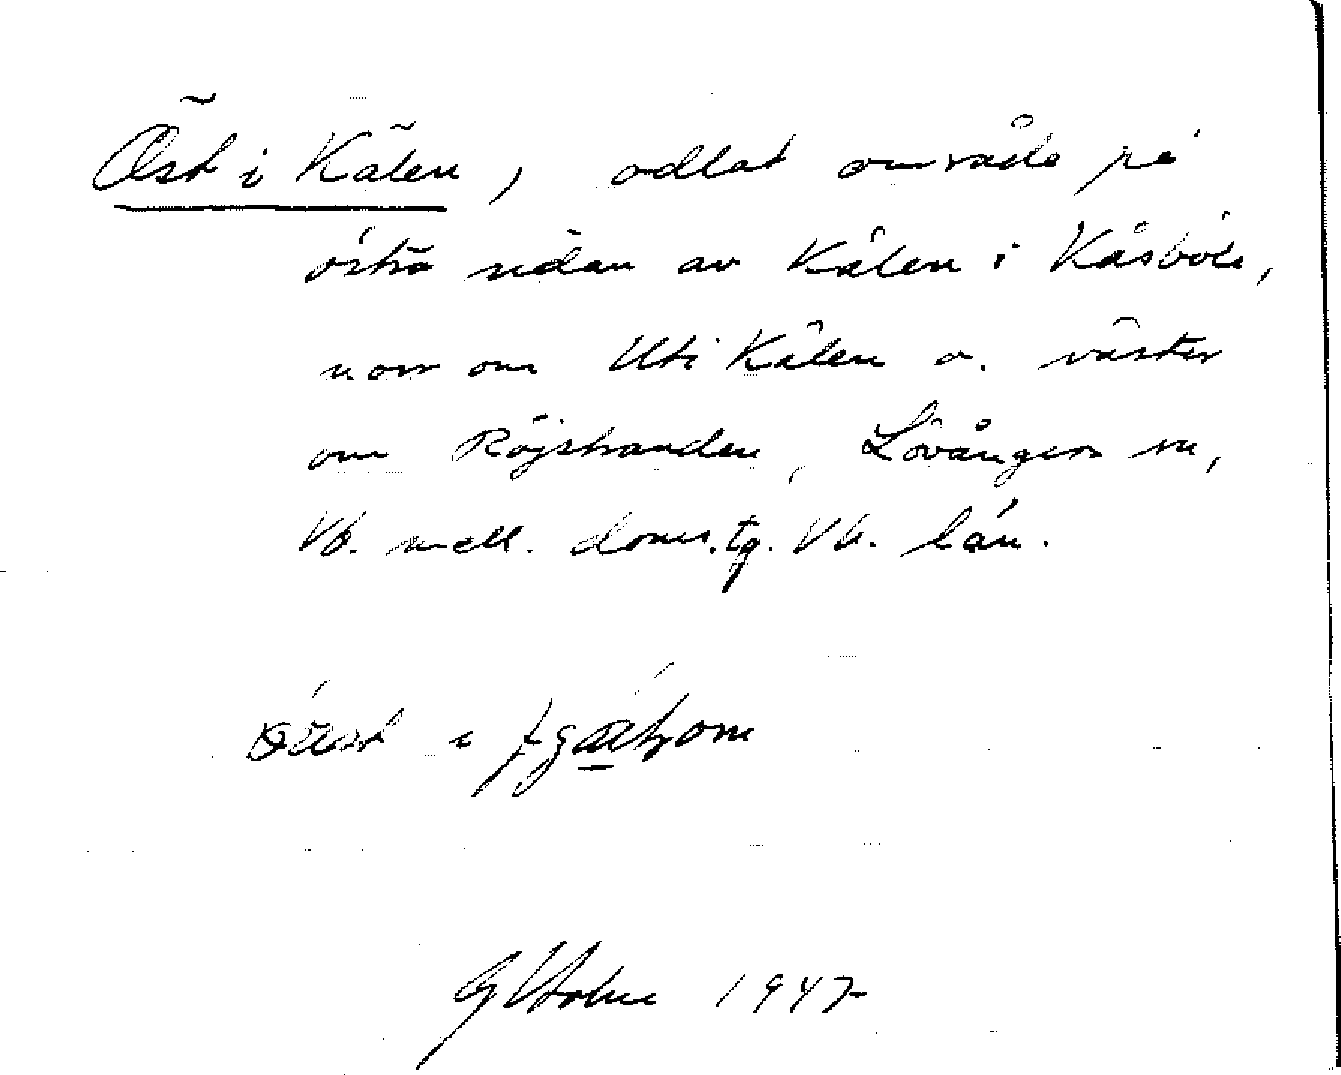 Öst i Kälen, odlat område på
östra sidan av Kälen i Kåsböle,
norr om Uti Kälen o. väster
om Röjstranden, Lövångers sn,
Vb. mell. doms.tg. Vb. län.
G Holm 1947